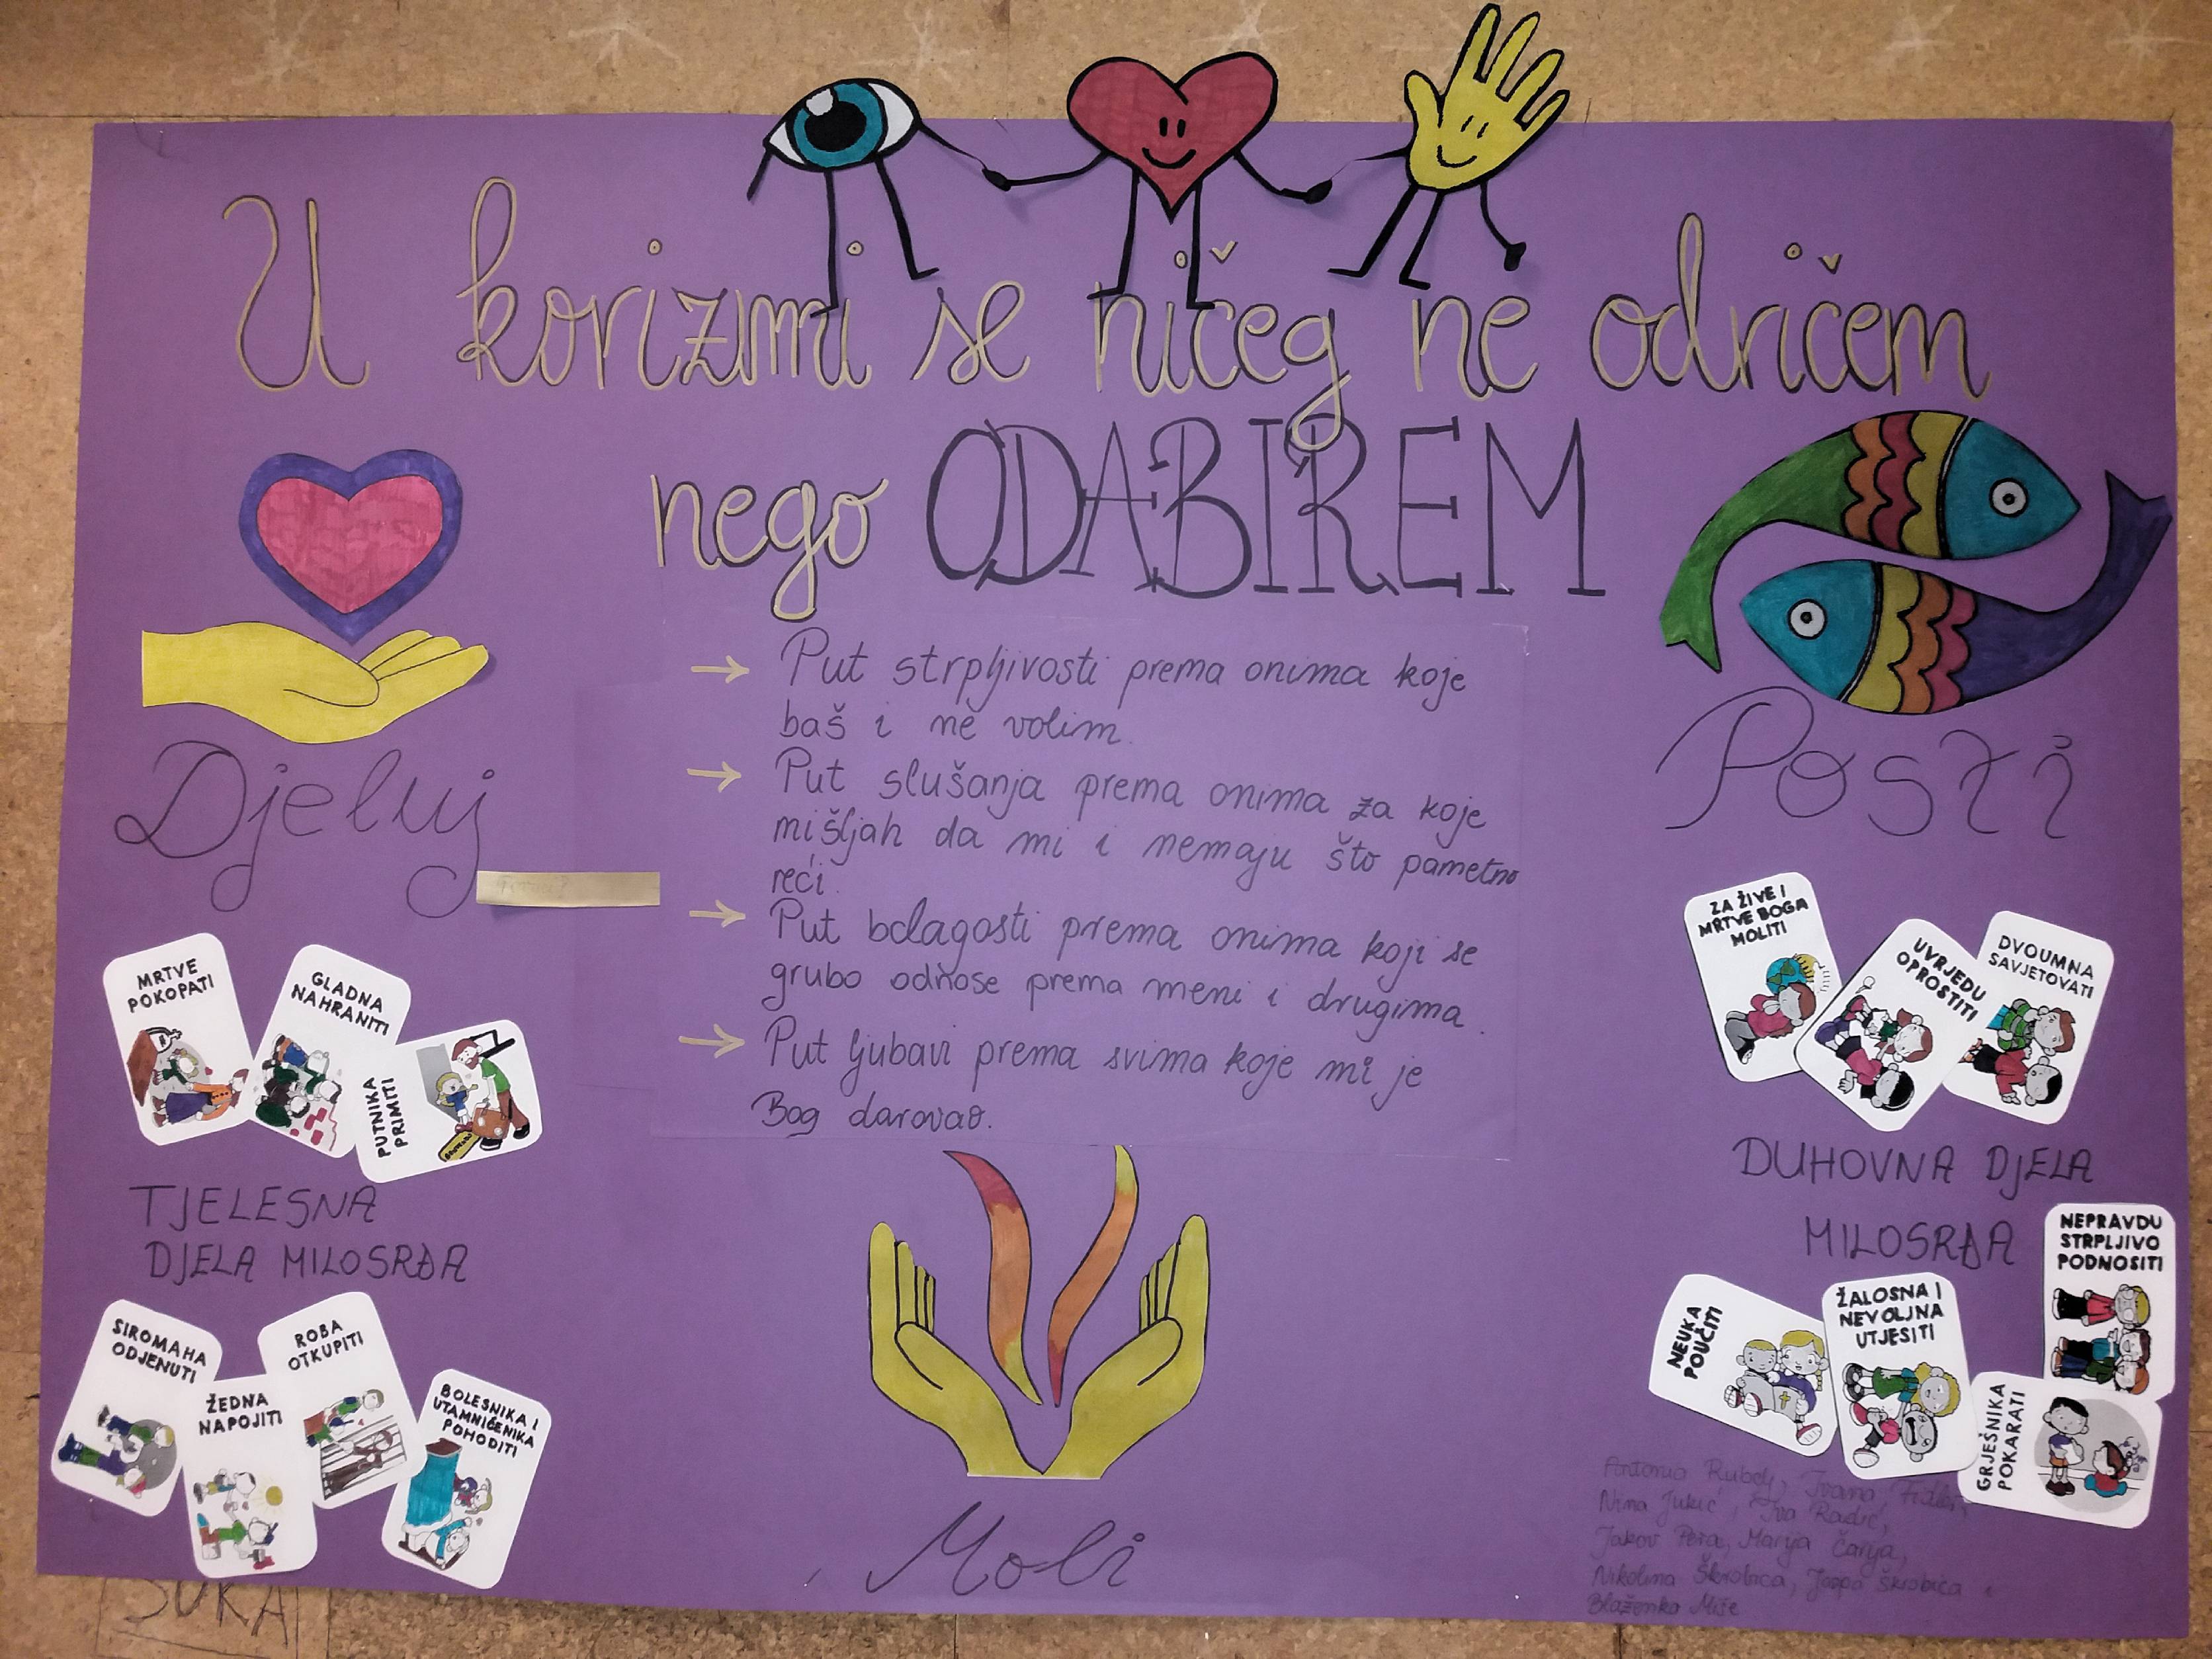 U korizmi se ničeg ne odričem
nego ODABIREM
Put strpljivosti prema onima koje
baš i ne volim.
Put slušanja prema onima za koje
mišljah da mi i nemaju što pametno
reći.
Put bclagosti prema onima koji se
grubo odnose prema meni i drugima.
Put ljubavi prema svima koje mi je
Bog darovao.
Djeluj
MRTVE
POKOPATI
GLADNA
NAHRANITI
PUTNIKA
PRIMITI
TJELESNA
DJELA MILOSRĐA
SIROMAHA
ODJENUTI
ŽEDNA
NAPOJITI
ROBA
OTKUPITI
BOLESNIKA I
UTAMNIČENIKA
POHODITI
Moli
Posti
ZA ŽIVE I
MRTVE BOGA
MOLITI
UVRJEDU
OPROSTITI
DVOUMNA
SAVJETOVATI
DUHOVNA DJELA
MILOSRĐA
NEPRAVDU
STRPLJIVO
PODNOSITI
NEUKA
POUČITI
ŽALOSNA I
NEVOLJNA
UTJEŠITI
GRJEŠNIKA
POKARATI
Ivana
Nina Jukić, Iva Radić,
Jakov Pera, Marija
Nikolina Škrobica, Josipa Škrobica i
Blaženka Miše